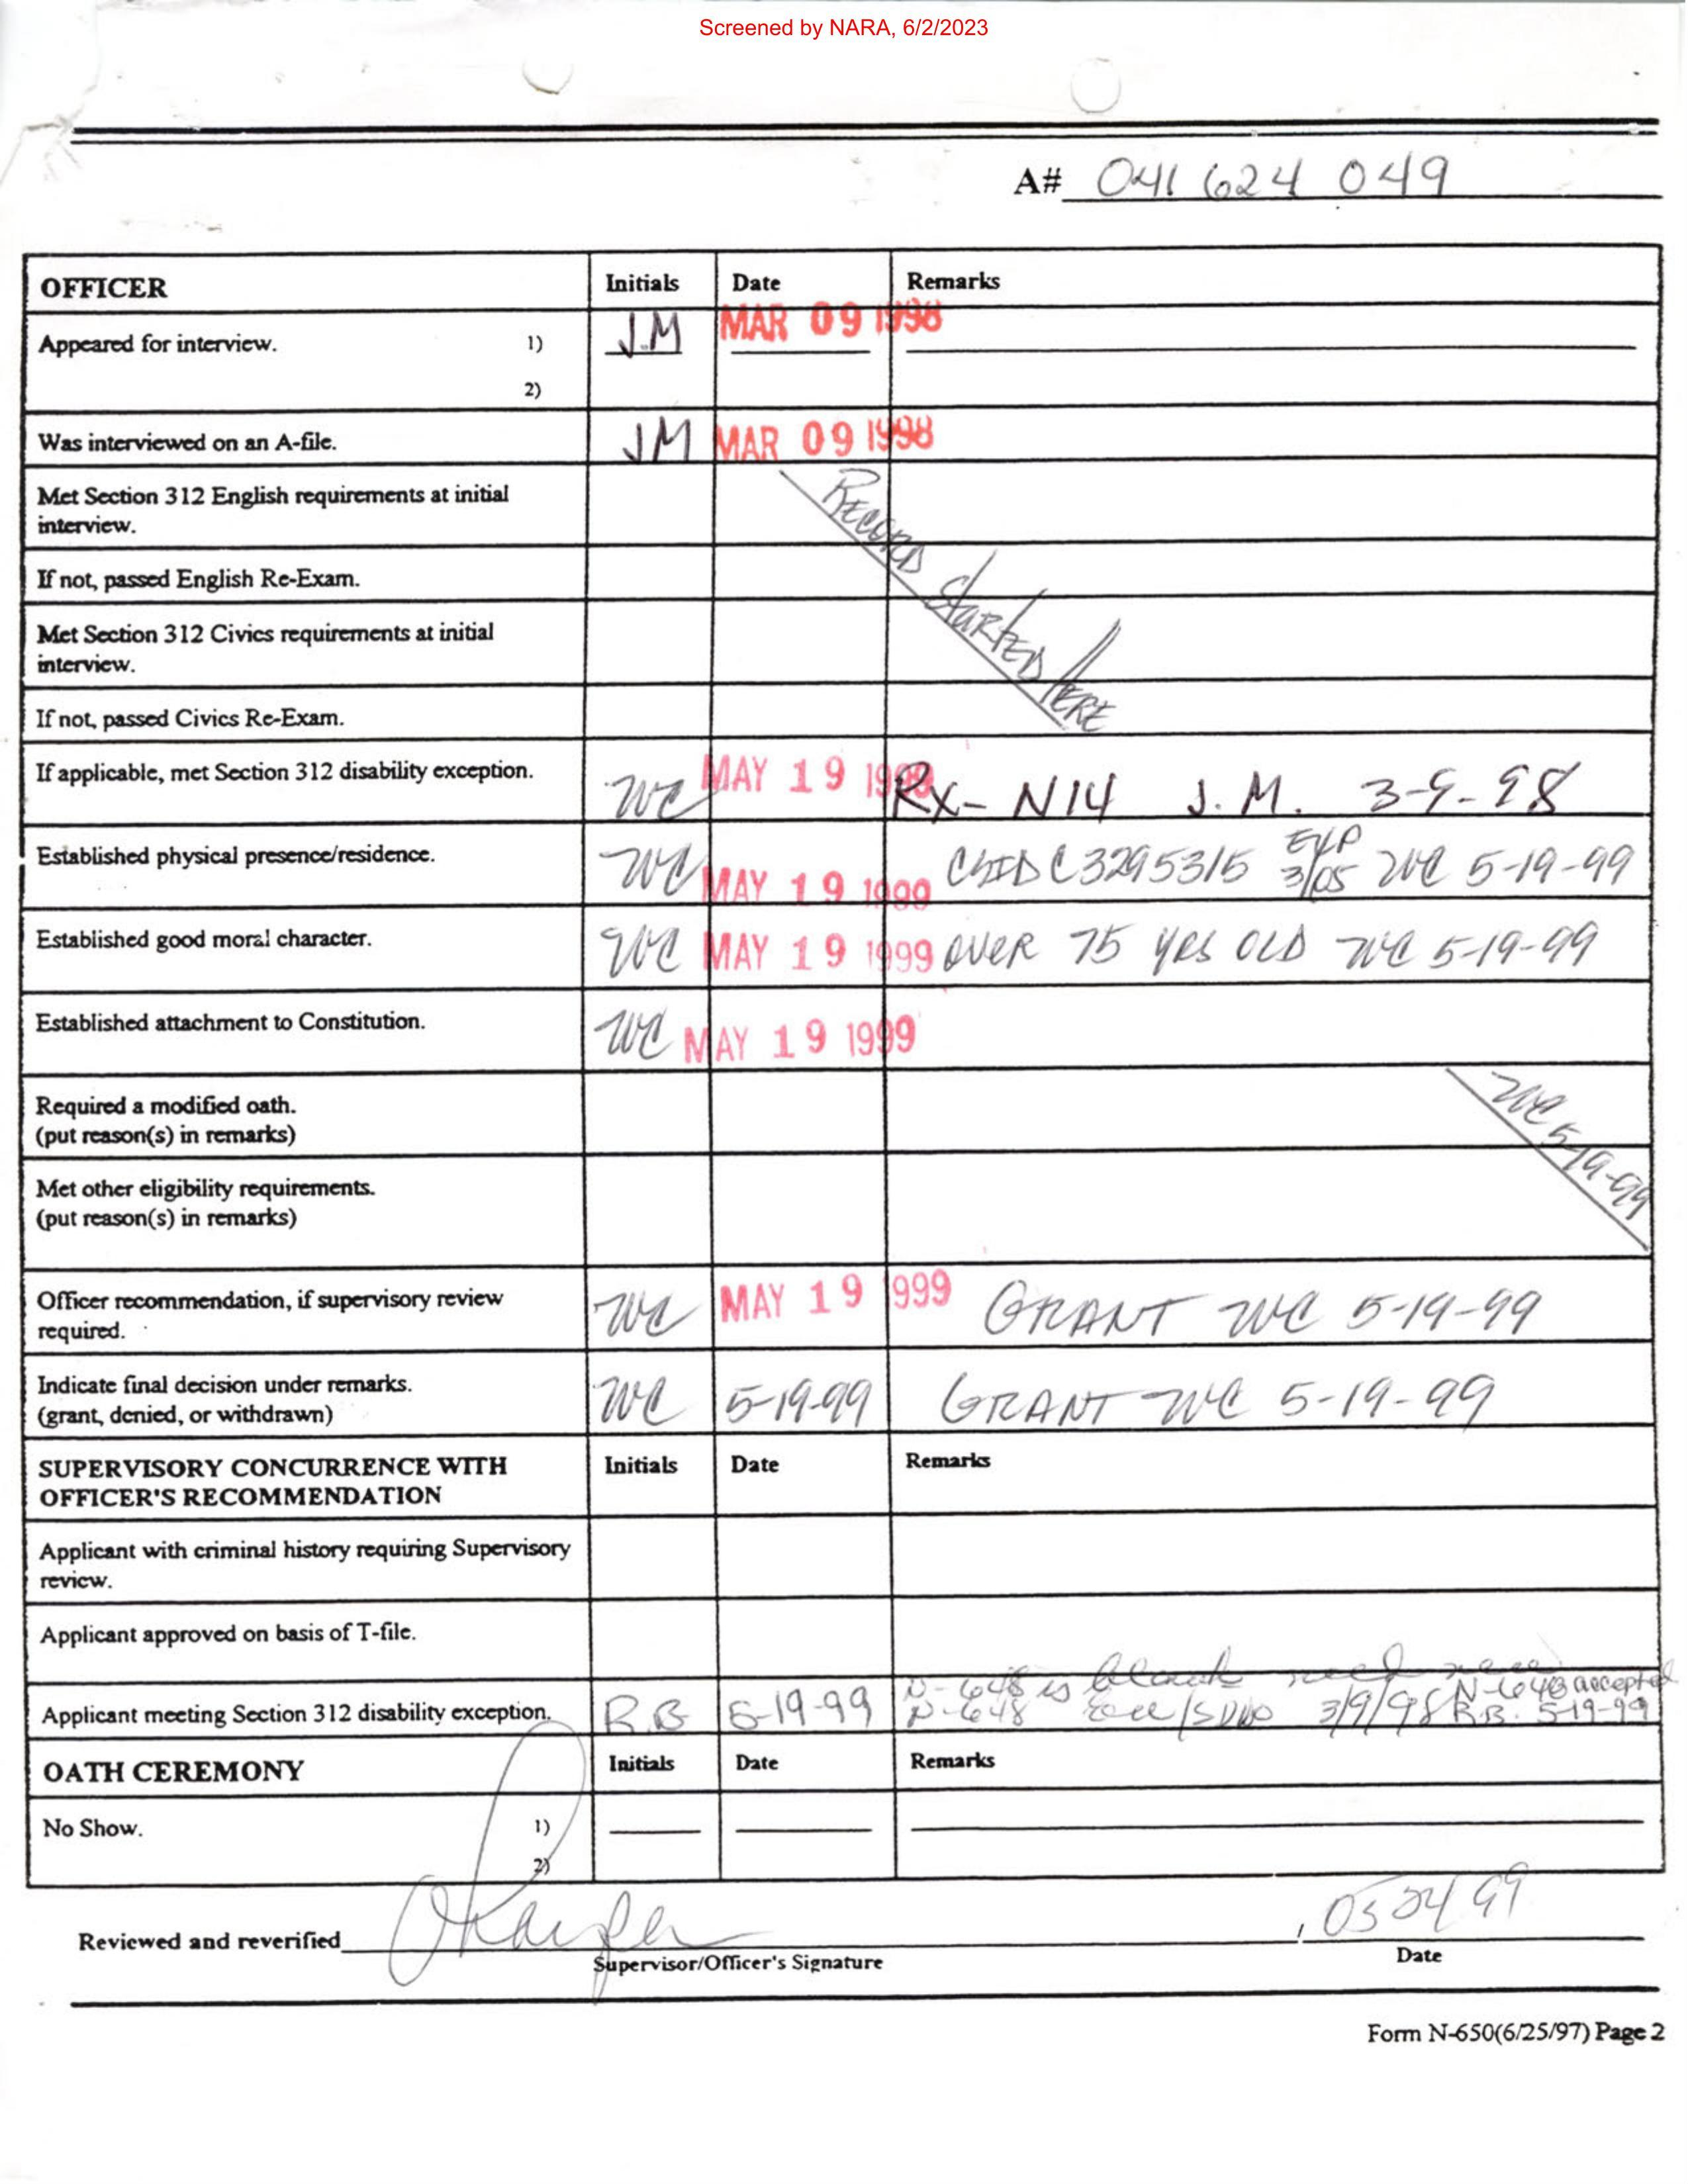 Screened by NARA, 6/2/2023
A# 041 624 049
OFFICER Initials Date Remarks
Appeared for interview. 1) J.M MAR 09 1998
2)
Was interviewed on an A-file. JM MAR 09 1998
Met Section 312 English requirements at initial
interview.
If not, passed English Re-Exam.
Met Section 312 Civics requirements at initial
interview.
If not, passed Civics Re-Exam.
RECORD STARTED HERE
If applicable, met Section 312 disability exception. WC MAY 19 1999 Rx- N14 J.M. 3-9-98
Established physical presence/residence. WC MAY 19 1999 C3295315 EXP 3/05 WC 5-19-99
Established good moral character. WC MAY 19 1999 OVER 75 YRS OLD WC 5-19-99
Established attachment to Constitution. WC MAY 19 1999
Required a modified oath.
(put reason(s) in remarks)
WC 5-19-99
Met other eligibility requirements.
(put reason(s) in remarks)
Officer recommendation, if supervisory review
required. WC MAY 19 999 GRANT WC 5-19-99
Indicate final decision under remarks.
(grant, denied, or withdrawn) WC 5-19-99 GRANT WC 5-19-99
SUPERVISORY CONCURRENCE WITH
OFFICER'S RECOMMENDATION Initials Date Remarks
Applicant with criminal history requiring Supervisory
review.
Applicant approved on basis of T-file.
N-648 is blank need new
Applicant meeting Section 312 disability exception. R.B 5-19-99 N-648 3/9/98 N-648 accepted R.B. 5-19-99
OATH CEREMONY Initials Date Remarks
No Show. 1)
2)
Reviewed and reverified 05 24 99
Supervisor/Officer's Signature Date
Form N-650(6/25/97) Page 2